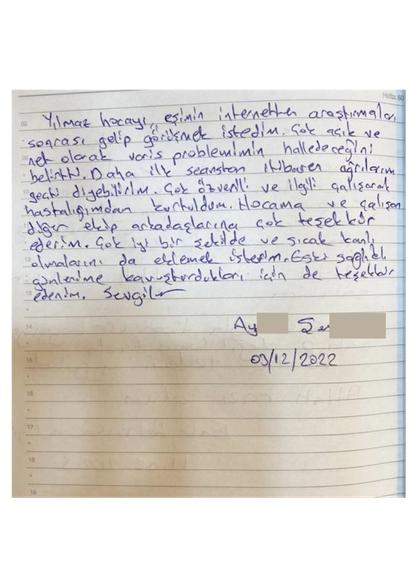 Hafta: 50
Yılmaz hocayı, eşimin internetten araştırmaları
sonrası gelip görüşmek istedim. Çok açık ve
net olarak varis problemimin halledeceğini
belirtti. Daha ilk seanstan itibaren ağrılarım
geçti diyebilirim. Çok özverili ve ilgili çalışarak
hastalığımdan kurtuldum. Hocama ve çalışan
diğer ekip arkadaşlarına çok teşekkür
ederim. Çok iyi bir şekilde ve sıcak kanlı
olmalarını da eklemek isterim. Eski sağlıklı
günlerime kavuşturdukları için de teşekkür
ederim. Sevgiler
Ay Şe
03/12/2022
14
15
16
17
18
19